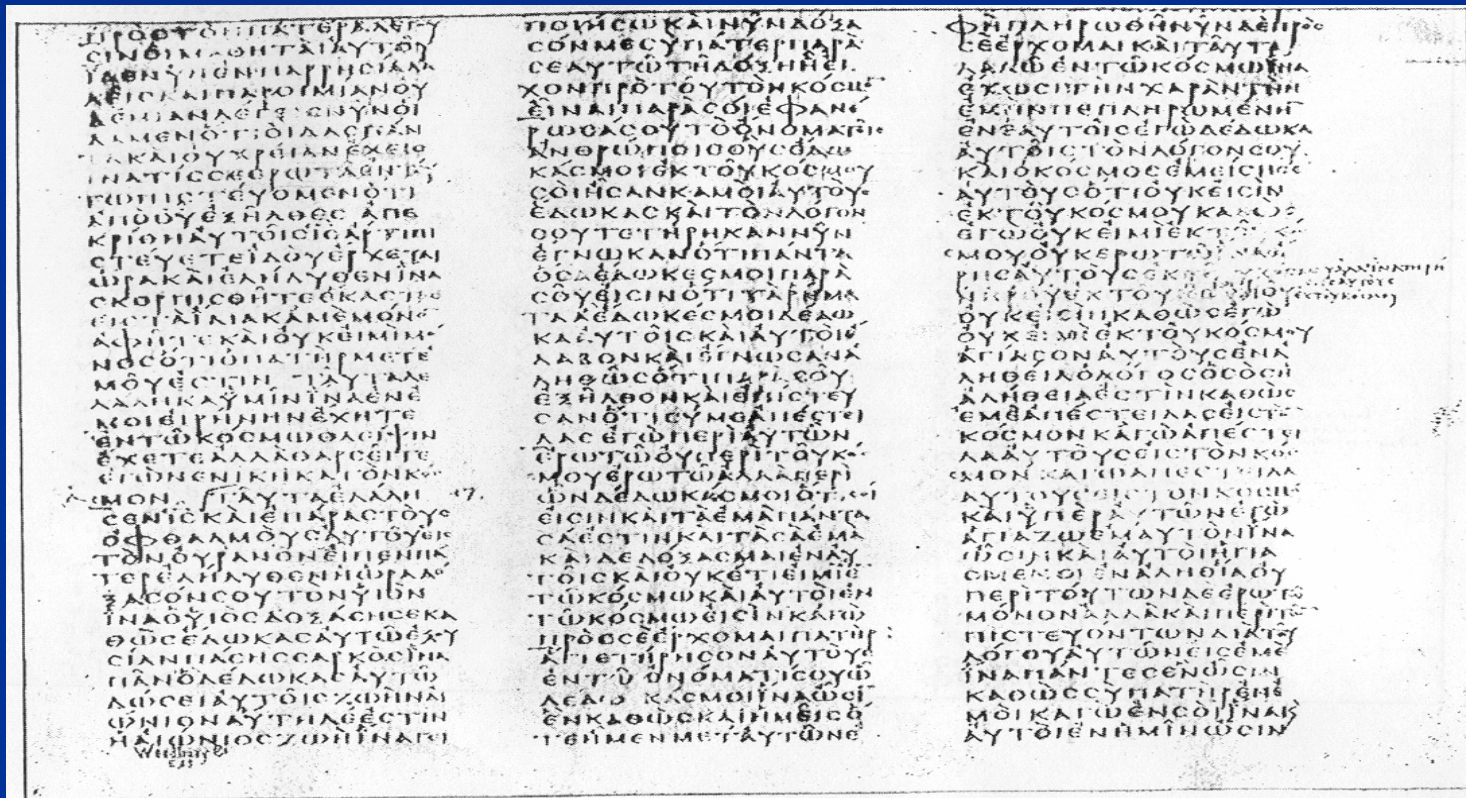 ΠΡΟϹΤΟΝΠΑΤΕΡΑΛΕΓΥ
ϹΙΝΟΙΜΑΘΗΤΑΙΑΥΤΟΥ
ΙΔΕΝΥΝΕΝΠΑΡΡΗϹΙΑΛΑ
ΛΕΙϹΚΑΙΠΑΡΟΙΜΙΑΝΟΥ
ΔΕΜΙΑΝΛΕΓΕΙϹΝΥΝΟΙ
ΔΑΜΕΝΟΤΙΟΙΔΑϹΠΑΝ
ΤΑΚΑΙΟΥΧΡΕΙΑΝΕΧΕΙϹ
ΙΝΑΤΙϹϹΕΕΡΩΤΑΕΝΤΥ
ΤΩΠΙϹΤΕΥΟΜΕΝΟΤΙ
ΑΠΟΘΥΕΞΗΛΘΕϹ ΑΠΕ
ΚΡΙΘΗΑΥΤΟΙϹΙϹΑΡΤΙΠΙ
ϹΤΕΥΕΤΕΙΔΟΥΕΡΧΕΤΑΙ
ΩΡΑΚΑΙΕΛΗΛΥΘΕΝΙΝΑ
ϹΚΟΡΠΙϹΘΗΤΕΕΚΑϹΤΟϹ
ΕΙϹΤΑΙΔΙΑΚΑΜΕΜΟΝΟ
ΑΦΗΤΕΚΑΙΟΥΚΕΙΜΙΜΟ
ΝΟϹΟΤΙΟΠΑΤΗΡΜΕΤΕ
ΜΟΥΕϹΤΙΝ ΤΑΥΤΑΛΕ
ΛΑΛΗΚΑΥΜΙΝΙΝΑΕΝΕ
ΜΟΙΕΙΡΗΝΗΝΕΧΗΤΕ
ΕΝΤΩΚΟϹΜΩΘΛΕΙΨΙΝ
ΕΧΕΤΕΑΛΛΑΘΑΡϹΕΙΤΕ
ΕΓΩΝΕΝΙΚΗΚΑΤΟΝΚΟ
ϹΜΟΝ ΤΑΥΤΑΕΛΑΛΗ 17.
ϹΕΝΙϹΚΑΙΕΠΑΡΑϹΤΟΥϹ
ΟΦΘΑΛΜΟΥϹΑΥΤΟΥΕΙϹ
ΤΟΝΟΥΡΑΝΟΝΕΙΠΕΝΠΑ
ΤΕΡΕΛΗΛΥΘΕΝΗΩΡΑΔΟ
ΞΑϹΟΝϹΟΥΤΟΝΥΙΟΝ
ΙΝΑΟΥΙΟϹΔΟΞΑϹΗϹΕΚΑ
ΘΩϹΕΔΩΚΑϹΑΥΤΩΕΞΥ
ϹΙΑΝΠΑϹΗϹϹΑΡΚΟϹΙΝΑ
ΠΑΝΟΔΕΔΩΚΑϹΑΥΤΩ
ΔΩϹΕΙΑΥΤΟΙϹΖΩΗΝΑΙ
ΩΝΙΟΝΑΥΤΗΔΕΕϹΤΙΝ
ΗΑΙΩΝΙΟϹΖΩΗΙΝΑΓΕΙ
ΠΟΙΗϹΩΚΑΙΝΥΝΔΟΞΑ
ϹΟΝΜΕϹΥΠΑΤΕΡΠΑΡΑ
ϹΕΑΥΤΩΤΗΔΟΞΗΗΕΙ
ΧΟΝΠΡΟΤΟΥΤΟΝΚΟϹΜ
ΕΙΝΑΙΠΑΡΑϹΟΙΕΦΑΝΕ
ΡΩϹΑϹΟΥΤΟΟΝΟΜΑΤΟΙϹ
ΑΝΘΡΩΠΟΙϹΟΥϹΕΔΩ
ΚΑϹΜΟΙΕΚΤΟΥΚΟϹΜΟΥ
ϹΟΙΗϹΑΝΚΑΜΟΙΑΥΤΟΥϹ
ΕΔΩΚΑϹΚΑΙΤΟΝΛΟΓΟΝ
ϹΟΥΤΕΤΗΡΗΚΑΝΝΥΝ
ΕΓΝΩΚΑΝΟΤΙΠΑΝΤΑ
ΟϹΑΕΔΩΚΕϹΜΟΙΠΑΡΑ
ϹΟΥΕΙϹΙΝΟΤΙΤΑΡΗΜΑ
ΤΑΑΕΔΩΚΕϹΜΟΙΔΕΔΩ
ΚΑΑΥΤΟΙϹΚΑΙΑΥΤΟΙΕ
ΛΑΒΟΝΚΑΙΕΓΝΩϹΑΝΑ
ΛΗΘΩϹΟΤΙΠΑΡΑϹΟΥ
ΕΞΗΛΘΟΝΚΑΙΕΠΙϹΤΕΥ
ϹΑΝΟΤΙϹΥΜΕΑΠΕϹΤΕΙ
ΛΑϹΕΓΩΠΕΡΙΑΥΤΩΝ
ΕΡΩΤΩΟΥΠΕΡΙΤΟΥΚΟϹ
ΜΟΥΕΡΩΤΩΑΛΛΑΠΕΡΙ
ΩΝΔΕΔΩΚΑϹΜΟΙΟΤΙϹΟΙ
ΕΙϹΙΝΚΑΙΤΑΕΜΑΠΑΝΤΑ
ϹΑΕϹΤΙΝΚΑΙΤΑϹΑΕΜΑ
ΚΑΙΔΕΔΟΞΑϹΜΑΙΕΝΑΥ
ΤΟΙϹΚΑΙΟΥΚΕΤΙΕΙΜΙΕ
ΤΩΚΟϹΜΩΚΑΙΑΥΤΟΙΕΝ
ΤΩΚΟϹΜΩΕΙϹΙΝΚΑΓΩ
ΠΡΟϹϹΕΕΡΧΟΜΑΙΠΑΤΗΡ
ΑΓΙΕΤΗΡΗϹΟΝΑΥΤΟΥϹ
ΕΝΤΩΟΝΟΜΑΤΙϹΟΥΩ
ΔΕΔΩΚΑϹΜΟΙΙΝΑΩϹΙ
ΕΝΚΑΘΩϹΚΑΙΗΜΕΙϹΟ
ΤΕΗΜΗΝΜΕΤΑΥΤΩΝΕ
ΦΗΠΛΗΡΩΘΗΝΥΝΔΕΠΡΟϹ
ϹΕΕΡΧΟΜΑΙΚΑΙΤΑΥΤΑ
ΛΑΛΩΕΝΤΩΚΟϹΜΩΙΝΑ
ΕΧΩϹΙΤΗΝΧΑΡΑΝΤΗΝ
ΕΜΗΝΠΕΠΛΗΡΩΜΕΝΗ
ΕΝΕΑΥΤΟΙϹΕΓΩΔΕΔΩΚΑ
ΑΥΤΟΙϹΤΟΝΛΟΓΟΝϹΟΥ
ΚΑΙΟΚΟϹΜΟϹΕΜΕΙϹΗϹΕ
ΑΥΤΟΥϹΟΤΙΟΥΚΕΙϹΙΝ
ΕΚΤΟΥΚΟϹΜΟΥΚΑΘΩϹ
ΕΓΩΟΥΚΕΙΜΙΕΚΤΟΥΚΟϹ
ΜΟΥΟΥΚΕΡΩΤΩΙΝΑ
ΡΗϹΑΥΤΟΥϹΕΚΤΟΥ
ΟΥΚΕΙϹΙΝΚΑΘΩϹΕΓΩ
ΟΥΚΕΙΜΙΕΚΤΟΥΚΟϹΜΟΥ
ΑΓΙΑϹΟΝΑΥΤΟΥϹΕΝΑ
ΛΗΘΕΙΑΟΛΟΓΟϹΟϹΟϹΗ
ΑΛΗΘΕΙΑΕϹΤΙΝΚΑΘΩϹ
ΕΜΕΑΠΕϹΤΕΙΛΑϹΕΙϹΤΟ
ΚΟϹΜΟΝΚΑΓΩΑΠΕϹΤΕΙ
ΛΑΑΥΤΟΥϹΕΙϹΤΟΝΚΟϹ
ΜΟΝΚΑΓΩΑΠΕϹΤΕΙΛΑ
ΑΥΤΟΥϹΕΙϹΤΟΝΚΟϹΜΟ
ΚΑΙΥΠΕΡΑΥΤΩΝΕΓΩ
ΑΓΙΑΖΩΕΜΑΥΤΟΝΙΝΑ
ΩϹΙΝΚΑΙΑΥΤΟΙΗΓΙΑ
ϹΜΕΝΟΙΕΝΑΛΗΘΙΑΟΥ
ΠΕΡΙΤΟΥΤΩΝΔΕΕΡΩΤΩ
ΜΟΝΟΝΑΛΛΑΚΑΙΠΕΡΙΤΩ
ΠΙϹΤΕΥΟΝΤΩΝΔΙΑΤΟΥ
ΛΟΓΟΥΑΥΤΩΝΕΙϹΕΜΕ
ΙΝΑΠΑΝΤΕϹΕΝΩϹΙΝ
ΚΑΘΩϹϹΥΠΑΤΗΡΕΝΕ
ΜΟΙΚΑΓΩΕΝϹΟΙΙΝΑΚ
ΑΥΤΟΙΕΝΗΜΙΝΩϹΙΝ